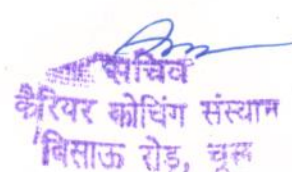 सचिव
कैरियर कोचिंग संस्थान
बिसाऊ रोड़, चूरू